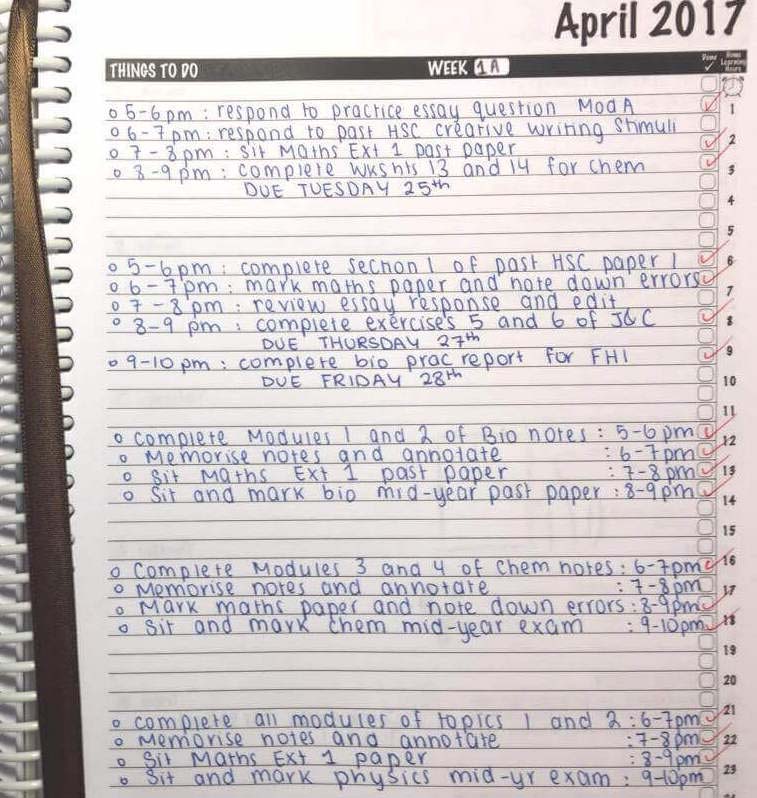 April 2017
THINGS TO DO WEEK 1A Done Home Learning Hours
o 5-6pm : respond to practice essay question Mod A 1
o 6-7pm : respond to past HSC creative writing stimuli
o 7-8pm : sit Maths Ext 1 past paper 2
o 8-9pm : complete wkshts 13 and 14 for chem 3
DUE TUESDAY 25th
4
5
o 5-6pm : complete section 1 of past HSC paper 1 6
o 6-7pm : mark maths paper and note down errors
o 7-8pm : review essay response and edit 7
o 8-9 pm : complete exercises 5 and 6 of J&C 8
DUE THURSDAY 27th
o 9-10pm : complete bio prac report for FHI 9
DUE FRIDAY 28th 10
11
o Complete Modules 1 and 2 of Bio notes : 5-6pm 12
o Memorise notes and annotate : 6-7pm
o Sit Maths Ext 1 past paper : 7-8pm 13
o Sit and mark bio mid-year past paper : 8-9pm 14
15
o Complete Modules 3 and 4 of Chem notes : 6-7pm 16
o Memorise notes and annotate : 7-8pm 17
o Mark maths paper and note down errors : 8-9pm
o Sit and mark chem mid-year exam : 9-10pm 18
19
20
o Complete all modules of topics 1 and 2 : 6-7pm 21
o Memorise notes and annotate : 7-8pm 22
o Sit Maths Ext 1 paper : 8-9pm
o Sit and mark physics mid-yr exam : 9-10pm 23